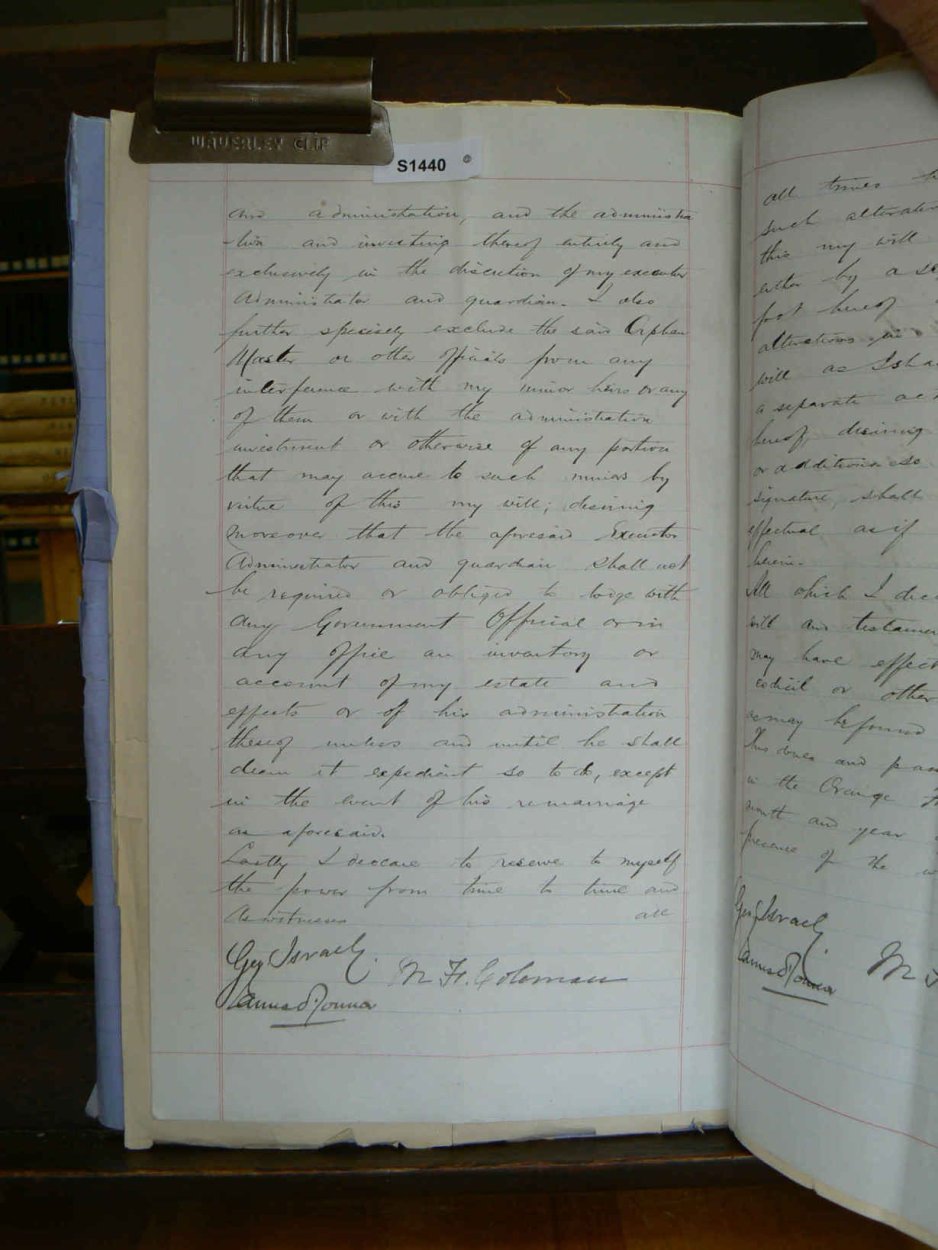 WAVERLEY CLIP
S1440
and administration, and the administra
tion and investing thereof entirely and
exclusively in the discretion of my executor
Administrator and guardian. I also
further specially exclude the said Orphan
Master or other officials from any
interference with my minor heirs or any
of them or with the administration
investment or otherwise of any portion
that may accrue to such minors by
virtue of this my will; desiring
moreover that the aforesaid Executor
Administrator and guardian shall not
be required or obliged to lodge with
any Government Official or in
any office an inventory or
account of my estate and
effects or of his administration
thereof unless and until he shall
deem it expedient so to do, except
in the event of his remarriage
as aforesaid.
Lastly I declare to reserve to myself
the power from time to time and
As witnesses all
Israel
M F. Coleman
all times
such alteration
this my will
either by a se
foot hereof
alterations in
will as I sha
a separate
hereof desiring
or additions so
signature shall
effectual as if
herein.
All which I dec
will and testamen
may have effect
codicil or other
as may be found
Thus done and pas
in the Orange
month and year
presence of the w
Israel
M